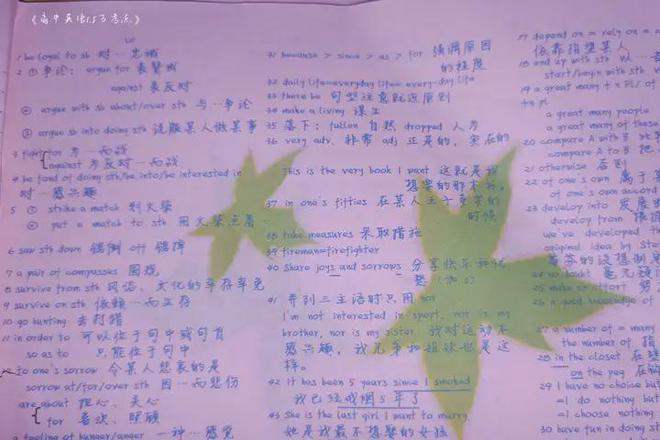 《高中英语153考点》
1 be loyal to sb 对…忠诚
2 ① 争论: argue for 表赞成
against 表反对
② argue with sb about/over sth 与…争论
③ argue sb into doing sth 说服某人做某事
3 fight for 为…而战
against 为反对…而战
4 be fond of doing sth/be into/be interested in
对…感兴趣
5 ① strike a match 划火柴
② put a match to sth 用火柴点着
6 saw sth down 锯倒 off 锯掉
7 a pair of compasses 圆规
8 survive from sth 风俗、文化的幸存
9 survive on sth 依赖…而生存
10 go hunting 去打猎
11 in order to 可以位于句中或句首
so as to 只能位于句中
to one's sorrow 令某人悲哀的是
sorrow at/for/over sth 因…而悲伤
are about 担心、关心
for 喜欢、照顾
a feeling of hunger/anger 一种…感觉
31 because > since > as > for 强调原因
的程度
32 daily life=everyday life= every-day life
33 there be 句型注意就近原则
34 make a living 谋生
35 落下: fallen 自然 dropped 人为
36 very adv. 非常 adj 正是的, 实在的
This is the very book I want 这就是我
想要的那本书。
37 in one's fifties 在某人五十多岁的
时候
38 take measures 采取措施
39 fireman=firefighter
40 Share joys and sorrows 分享快乐和忧
愁
41 并列三主语时只用 nor
I'm not interested in sport, nor is my
brother, nor is my sister 我对运动不
感兴趣, 我兄弟和姐妹也是这
样。
42 It has been 5 years since I smoked
我已经戒烟5年了
43 She is the last girl I want to marry.
她是我最不想娶的女孩
17 depend on = rely on =
依靠指望某人
18 end up with sth 以
start/begin with sth
19 a great many + Pl/ of
+ pl
a great many people
a great many of these
20 compare A with B
compare A to B 把
21 otherwise 否则
22 of one's own 属于
of one's own accord
23 develop into 发展
develop from
we've developed
original idea by
24 no doubt 毫无
25 make an effort 努
26 a good knowledge of
27 a number of = many
the number of 指
28 in the closet 在壁
on the peg 在
29 I have no choice but
=I do nothing but
=I choose nothing
30 have fun in doing st